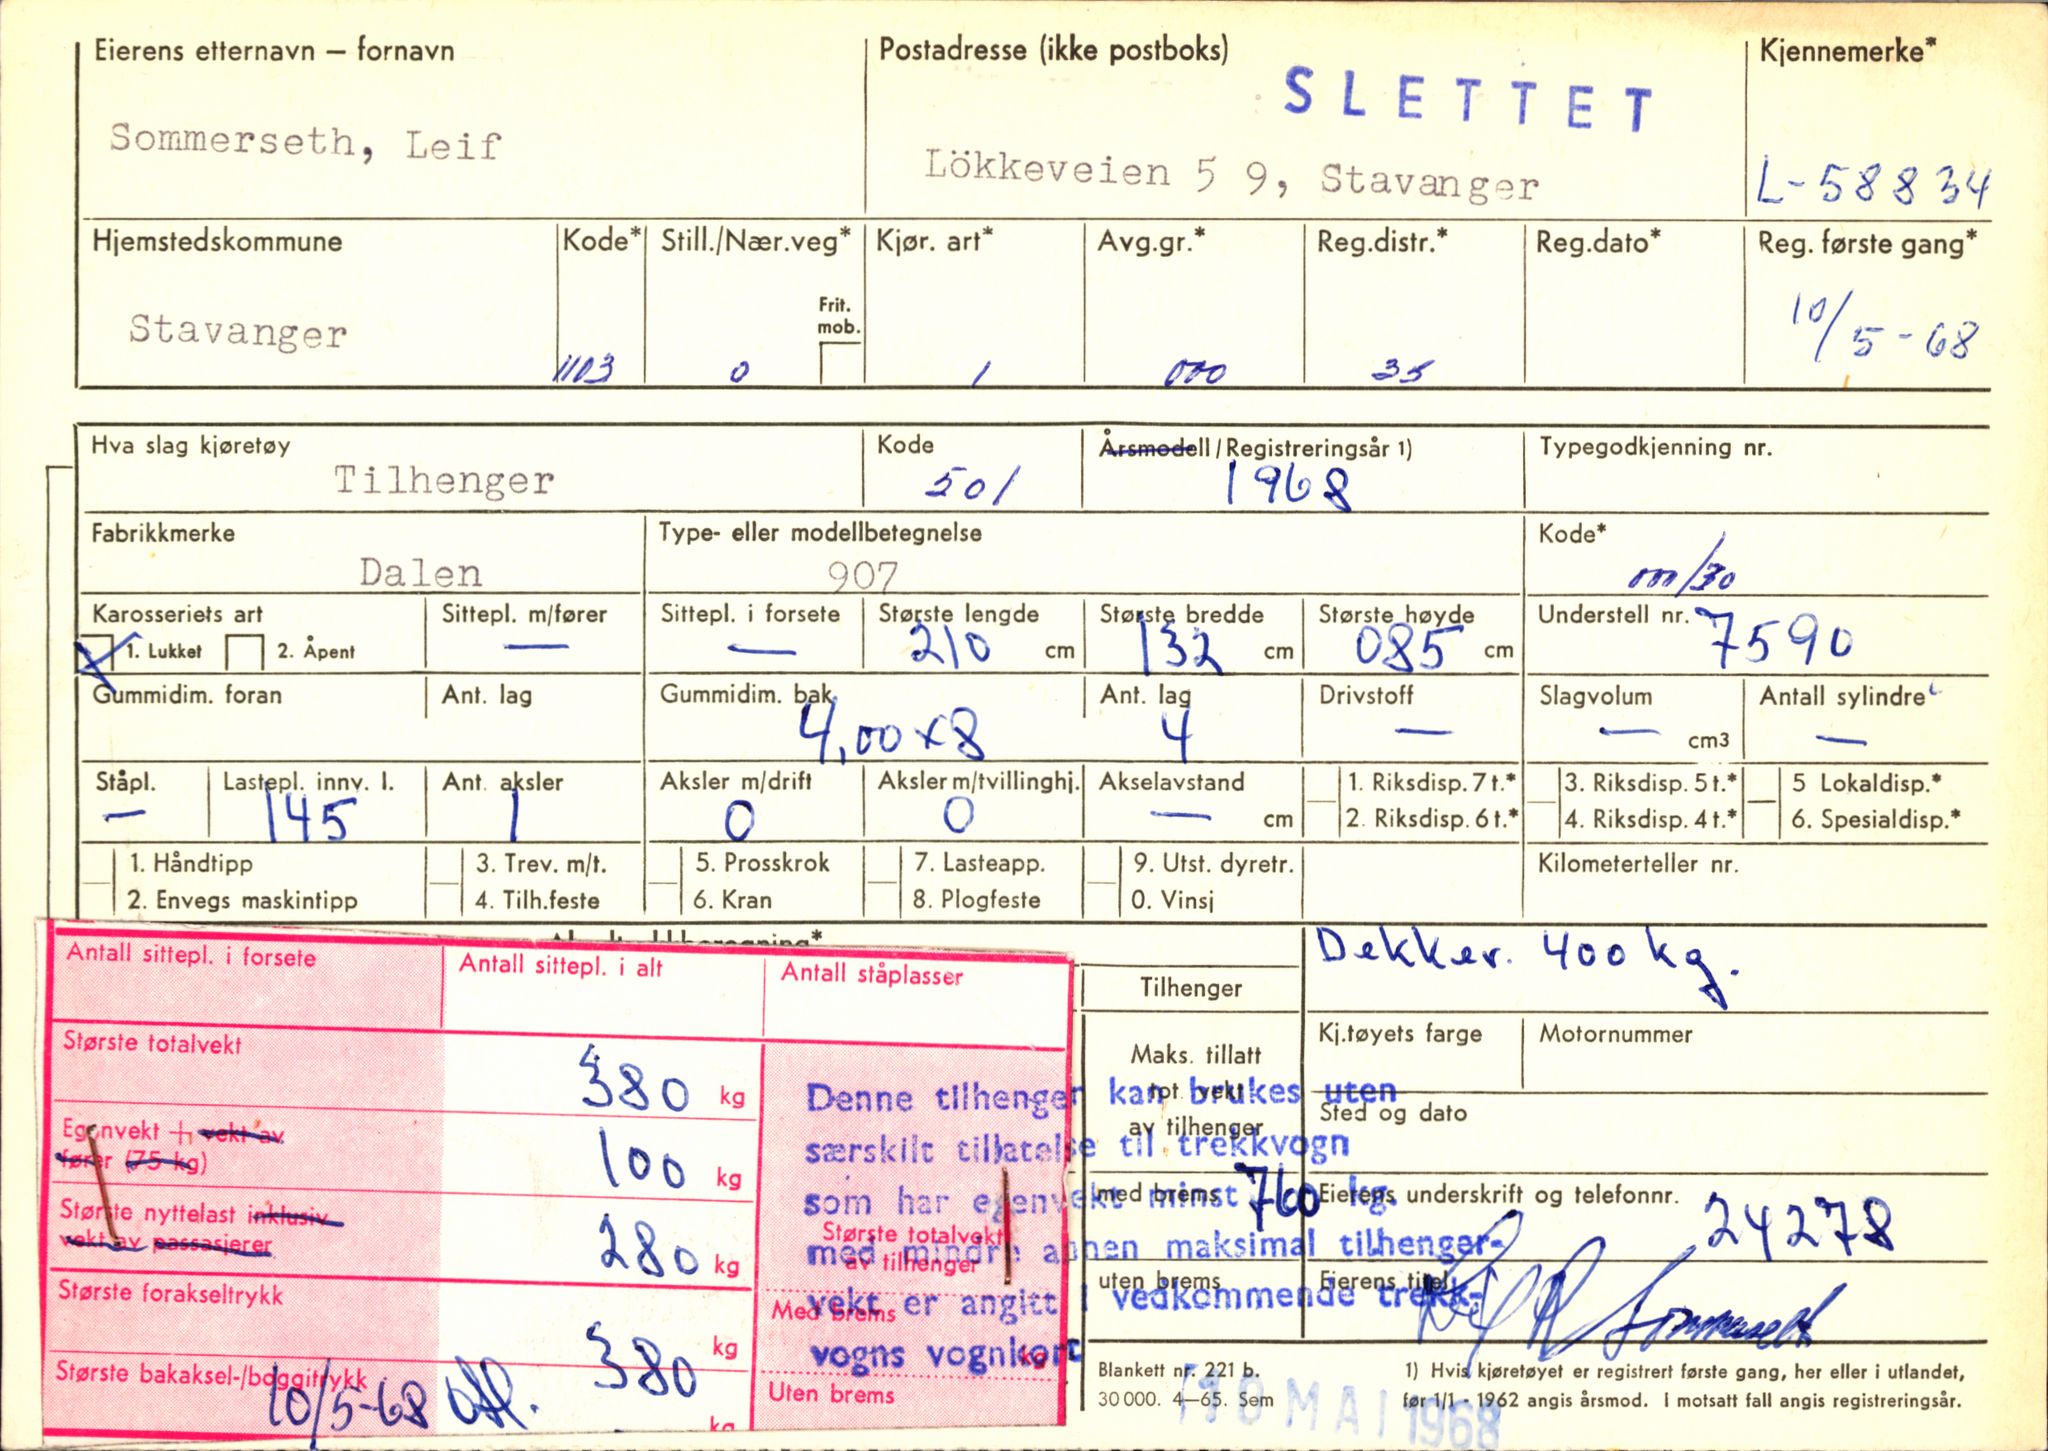 Eierens etternavn – fornavn
Sommerseth, Leif
Postadresse (ikke postboks)
SLETTET
Lökkeveien 5 9, Stavanger
Kjennemerke*
L-58834
Hjemstedskommune
Stavanger
Kode*
1103
Still./Nær.veg*
Frit. mob.
0
Kjør. art*
1
Avg.gr.*
000
Reg.distr.*
35
Reg.dato*
Reg. første gang*
10/5-68
Hva slag kjøretøy
Tilhenger
Kode
501
Årsmodell/Registreringsår 1)
1968
Typegodkjenning nr.
Fabrikkmerke
Dalen
Type- eller modellbetegnelse
907
Kode*
m/30
Karosseriets art
1. Lukket
2. Åpent
Sittepl. m/fører
—
Sittepl. i forsete
—
Største lengde
210 cm
Største bredde
132 cm
Største høyde
085 cm
Understell nr.
7590
Gummidim. foran
Ant. lag
Gummidim. bak
4,00x8
Ant. lag
4
Drivstoff
—
Slagvolum
— cm3
Antall sylindre
—
Ståpl.
—
Lastepl. innv. l.
145
Ant. aksler
1
Aksler m/drift
0
Aksler m/tvillinghj.
0
Akselavstand
— cm
1. Riksdisp. 7 t.*
2. Riksdisp. 6 t.*
3. Riksdisp. 5 t.*
4. Riksdisp. 4 t.*
5 Lokaldisp.*
6. Spesialdisp.*
1. Håndtipp
2. Envegs maskintipp
3. Trev. m/t.
4. Tilh.feste
5. Prosskrok
6. Kran
7. Lasteapp.
8. Plogfeste
9. Utst. dyretr.
0. Vinsj
Kilometerteller nr.
Antall sittepl. i forsete
Antall sittepl. i alt
Antall ståplasser
Største totalvekt
380 kg
Egenvekt + vekt av
fører (75 kg)
100 kg
Største nyttelast inklusiv
vekt av passasjerer
280 kg
Største forakseltrykk
kg
Største bakaksel-/boggitrykk
380
kg
10/5-68
Største totalvekt
av tilhenger
Med brems
kg
Uten brems
Denne tilhenger kan brukes uten
særskilt tillatelse til trekkvogn
som har egenvekt minst 760 kg.
med mindre annen maksimal tilhenger-
vekt er angitt i vedkommende trekk-
vogns vognkort
Tilhenger
Maks. tillatt
tot. vekt
av tilhenger
med brems
uten brems
Dekker. 400 kg.
Kj.tøyets farge
Motornummer
Sted og dato
Eierens underskrift og telefonnr.
24278
Eierens titel
Leif Sommerseth
Blankett nr. 221 b.
30 000. 4–65. Sem
10 MAI 1968
1) Hvis kjøretøyet er registrert første gang, her eller i utlandet,
før 1/1 - 1962 angis årsmod. I motsatt fall angis registreringsår.